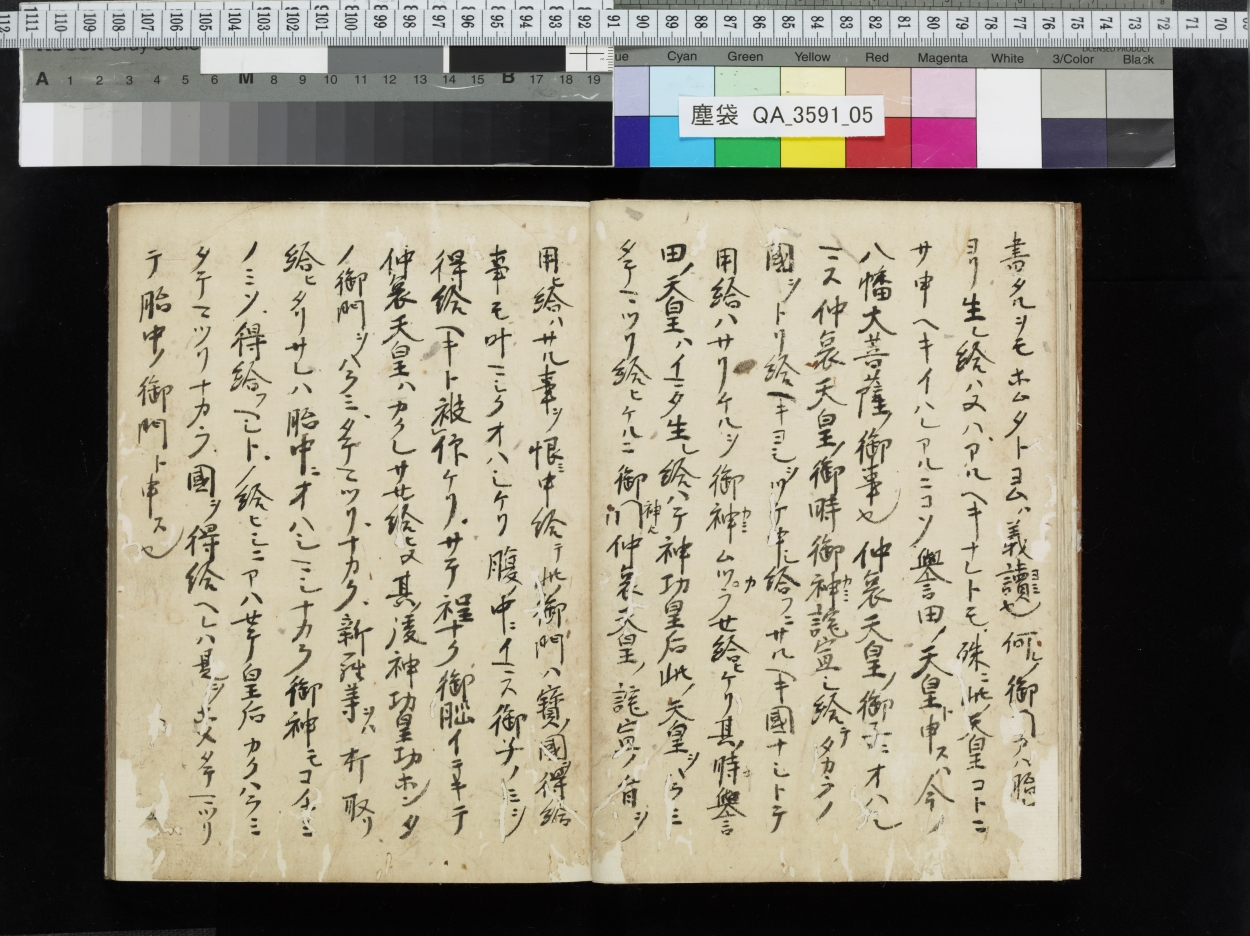 112 111 110 109 108 107 106 105 104 103 102 101 100 899 898 897 896 895 894 893 892 91 90 89 88 87 86 85 84 83 82 81 80 79 78 77 76 75 74 73 72 71 70
Cyan Green Yellow Red Magenta White 3/Color Black
A 1 2 3 4 5 6 M 8 9 10 11 12 13 14 15 B 17 18 19
塵袋 QA_3591_05
書タルヲモホムタトヨムハ義讀也何レノ御門カハ胎
ヨリ生レ給ハヌハアルヘキナレトモ殊ニ此天皇コトニ
サ申ヘキイハレアルニコソ譽田ノ天皇ト申スハ今ノ
八幡大菩薩ノ御事也仲哀天皇ノ御子ニオハシ
マス仲哀天皇ノ御時御神詫宣シ給テタカラノ
國ヲトリ給ヘキヨシヲツケ申シ給フニサルヘキ國ナシトテ
用給ハサリケルヲ御神ムツカラセ給ヒケリ其時譽
田ノ天皇ハイマタ生レ給ハテ神功皇后此ノ天皇ヲハラミ
タテマツリ給ヒケルニ御門仲哀天皇ノ詫宣ノ旨ヲ
用ヒ給ハサル事ヲ恨ミ申給テ此御門ハ寶ノ國ヲ得給
事モ叶マシクオハシケリ腹ノ中ニイマス御子ノミソ
得給ヘキト被仰ケリサテ程ナク御
仲哀天皇ハカクレサせ給ヒヌ其後神功皇
ノ御門ヲハラミタテマツリナカラ新羅等ヲハ打取リ
給ヒタリサレハ胎中ニオハシマシナカラ御神モコノ
ノミソ得給フヘシトノ給ヒ 皇后カクハラミ
タテマツリナカラ國ヲ得給ヘレハ是ヲ タテマツリ
テ胎中ノ御門ト申ス也